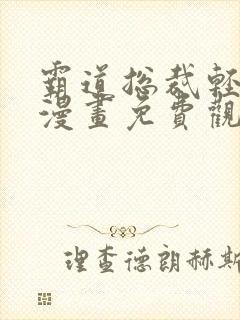 霸道总裁輕
漫畫免費觀
理查德朗赫斯